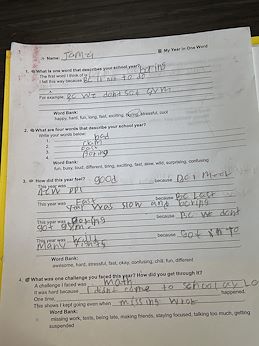 Name: Jamir
My Year in One Word
1. What is one word that describes your school year?
The first word I think of boring
I felt this way because BC is not to do
For example, BC We dont got GYM
Word Bank:
happy, hard, fun, long, fast, exciting, boring, stressful, cool
2. What are four words that describe your year?
Write your words below:
1. bad
2.
3.
4. Boring
Word Bank:
fun, busy, loud, different, tiring, exciting, fast, slow, wild, surprising, confusing
3. How did this year feel? good
This year was because
This year was Fast because BC Last
Year was slow and boring
This year was Boring because BC We dont
got gym.
This year was because Got in to
many
Word Bank:
awesome, hard, stressful, fast, okay, confusing, chill, fun, different
4. What was one challenge you faced this year? How did you get through it?
A challenge I faced was math
It was hard because I didnt come to school
One time, happened.
This shows I kept going even when missing work
Word Bank:
missing work, tests, being late, making friends, staying focused, talking too much, getting
suspended